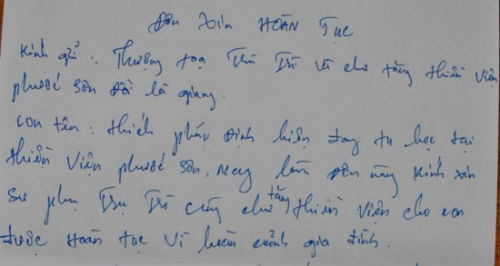 Đơn Xin HOÀN TỤC
Kính gửi: Thượng toạ Trụ Trì và chư tăng thiền viện
phước sơn Đồi lá giang.
con tên: thích pháp Định hiện đang tu học tại
thiền viện phước sơn, nay làm Đơn này kính xin
sư phụ Trụ Trì cùng chư tăng thiền viện cho con
được Hoàn tục vì hoàn cảnh gia đình.